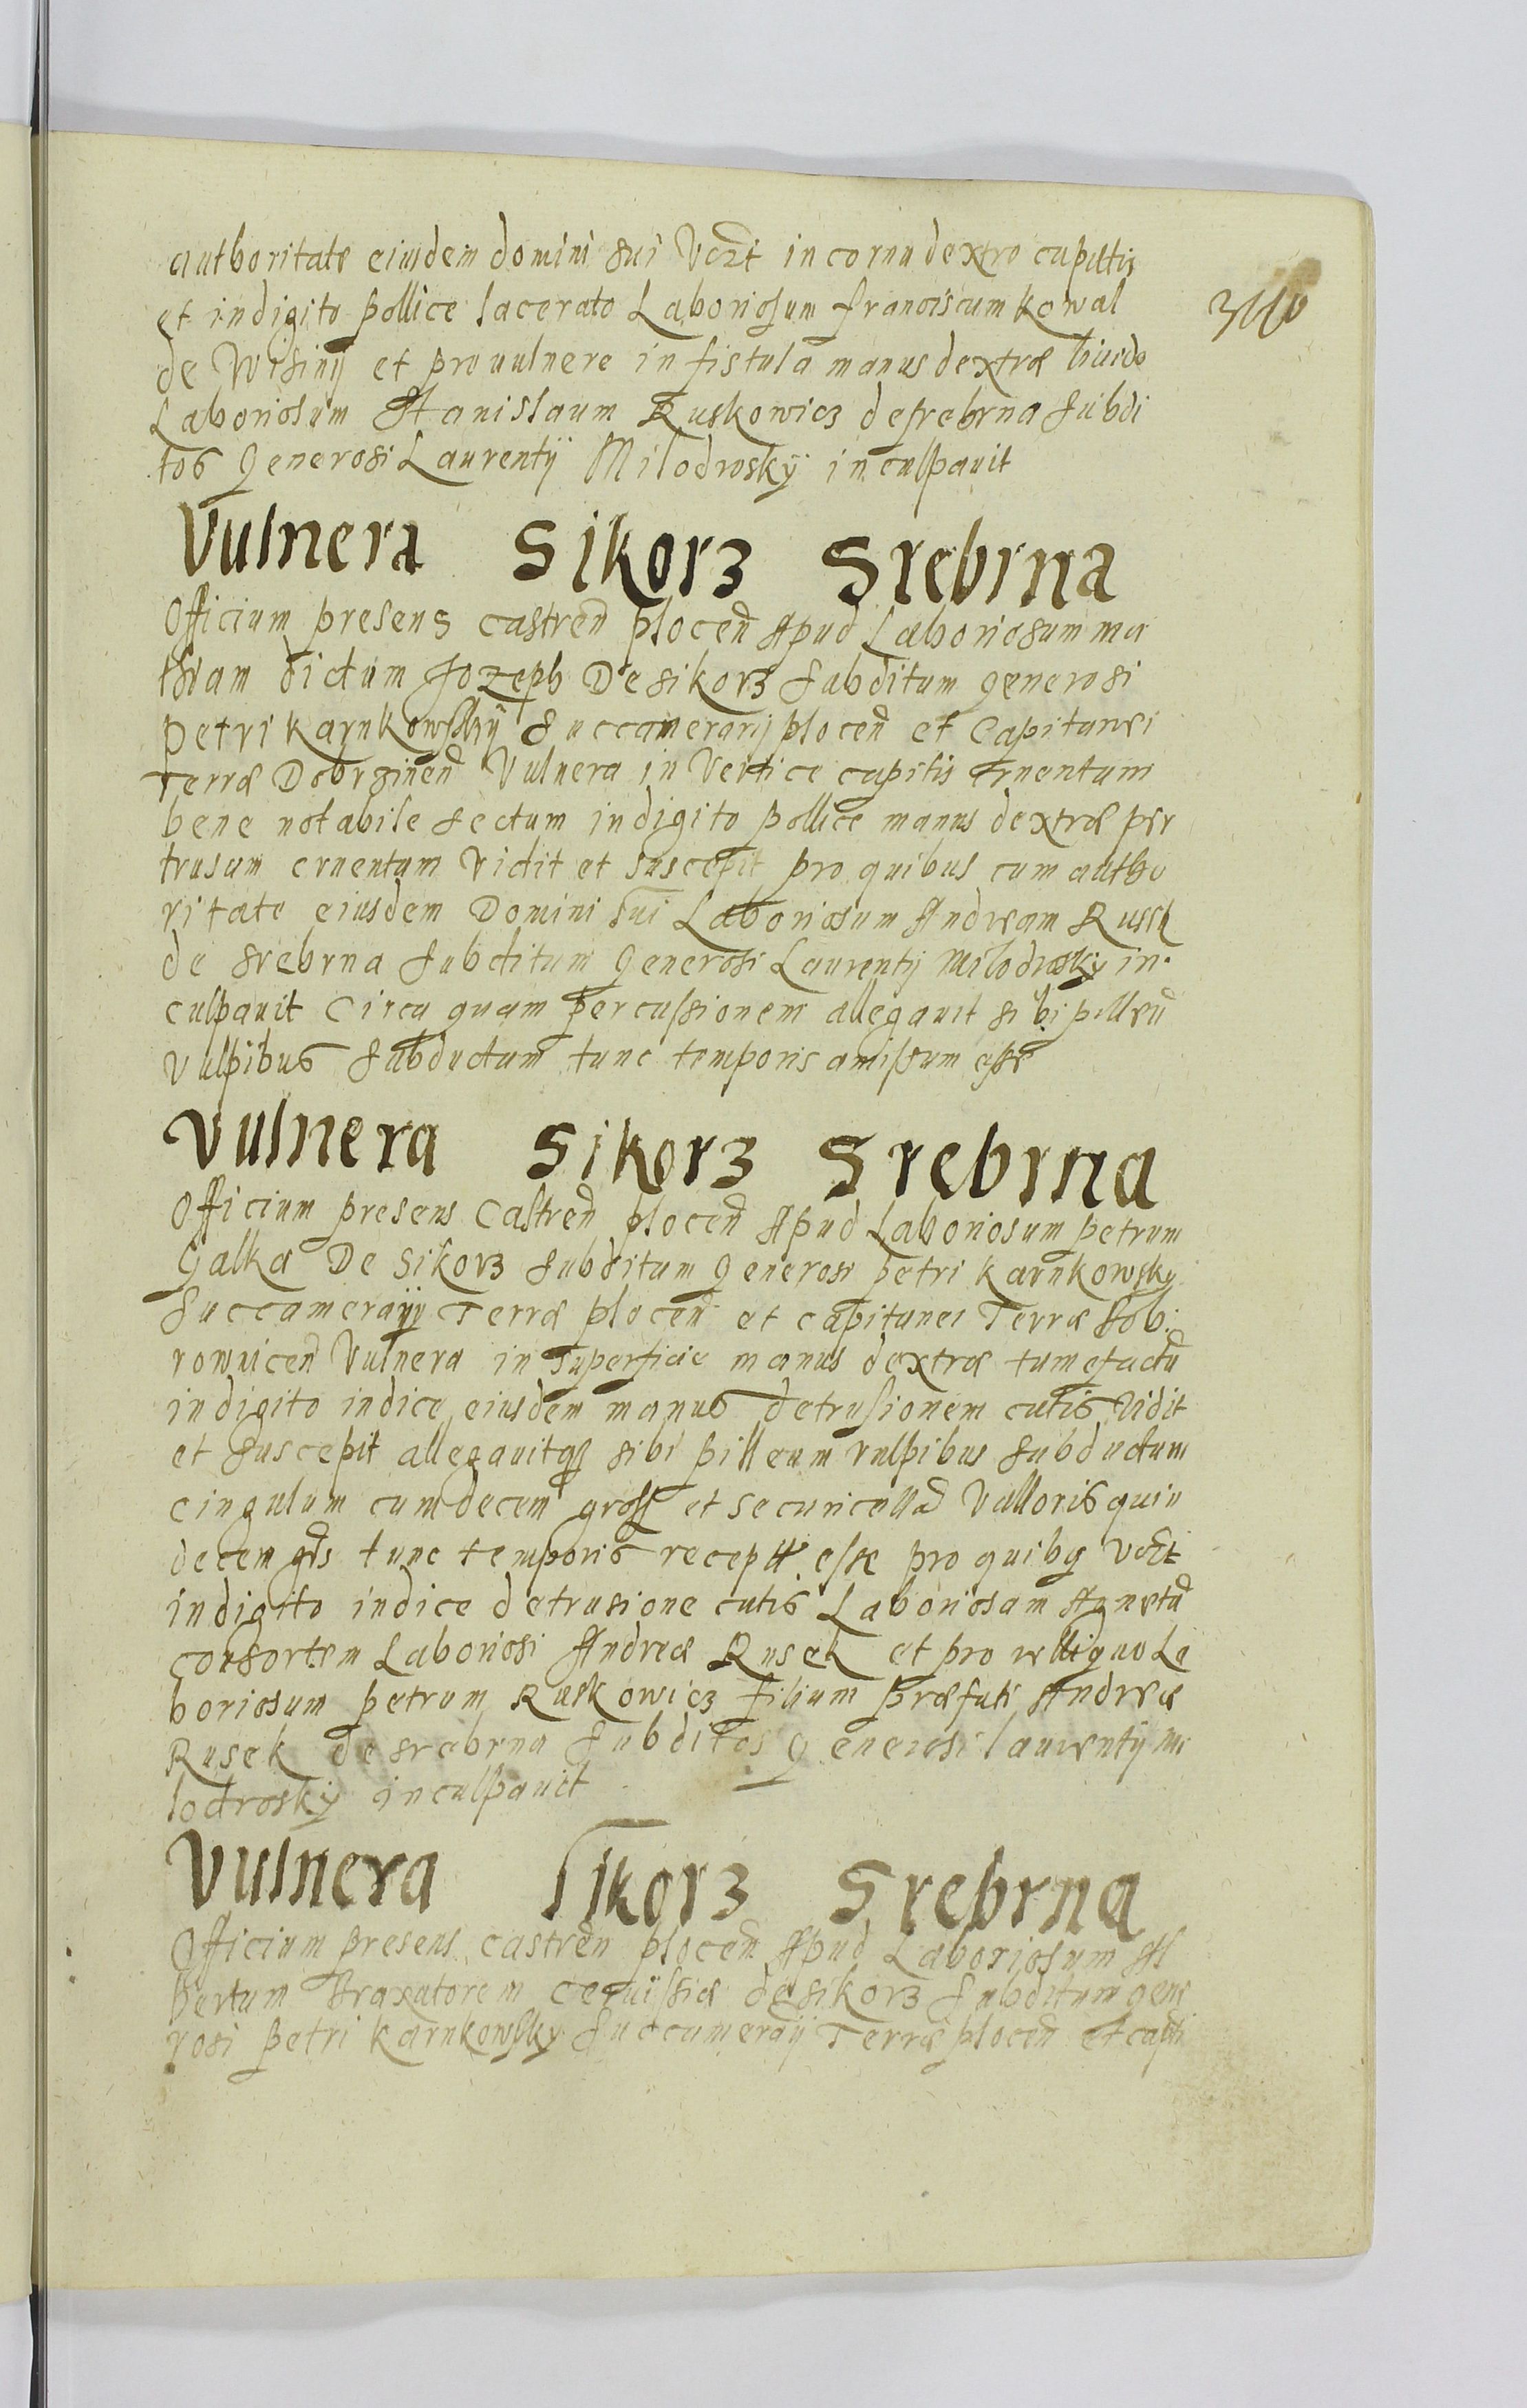 authoritate eiusdem domini sui Vczt in cornu dextro capittis
et in digito pollice lacerato Laboriosum franciscum kowal
de Wisinij et pro vulnere in fistula manus dextræ liuido
Laboriosum Stanislaum Ruskowicz de srebrna subdi
tos Generosi Laurentij Milodrosky inculpauit
Vulnera Sikorz Srebrna
Officium presens castren̄ plocen̄ Apud Laboriosum ma
thiam dictum Jozeph De sikorz subditum generosi
Petri karnkowsky Succamerarij plocen̄ et Capitanei
Terræ Dobrzinen̄ Vulnera in Vertice capitis cruentum
bene notabile sectum in digito pollice manus dextræ per
trusum cruentum vidit et suscepit pro quibus cum autho
ritate eiusdem Domini sui Laboriosum Andream Russk
de srebrna subditum Generosi Laurentij Milodrosky in
culpauit Circa quam percussionem allegauit sibi pilleū
vulpibus subductum tunc temporis amissum esse
Vulnera Sikorz Srebrna
Officium presens Castren̄ plocen̄ Apud Laboriosum petrum
Galka De Sikorz subditum Generosi petri karnkowsky
Succamerarij Terræ plocen̄ et capitanei Terræ Dob
rownicen̄ Vulnera in superficie manus dextræ tumefactū
in digito indice eiusdem manus detrusionem cutis vidit
et suscepit allegauitqꝫ sibi pilleum vulpibus subductum
cingulum cum decem gross et securicellā Valloris quin
decem grs tunc temporis recepta esse pro quibꝫ vczt
in digito indice detrusione cutis Laboriosam Agnetā
consortem Laboriosi Andreæ Rusek et pro relliquo La
boriosum petrum Ruskowicz filium præfati Andreæ
Rusek de srebrna subditos Generosi laurentij mi
lodrosky inculpauit
Vulnera Sikorz Srebrna
Officium presens castren̄ plocen̄ Apud Laboriosum Al
bertum Braxatorem ceruissiæ de sikorz subditum gene
rosi petri karnkowsky succamerarij Terræ plocen̄ et capti